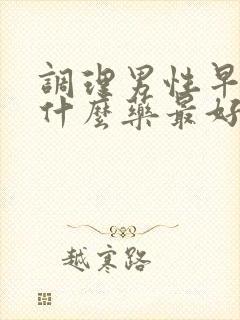 調理男性早
什麼藥最好
越寒路